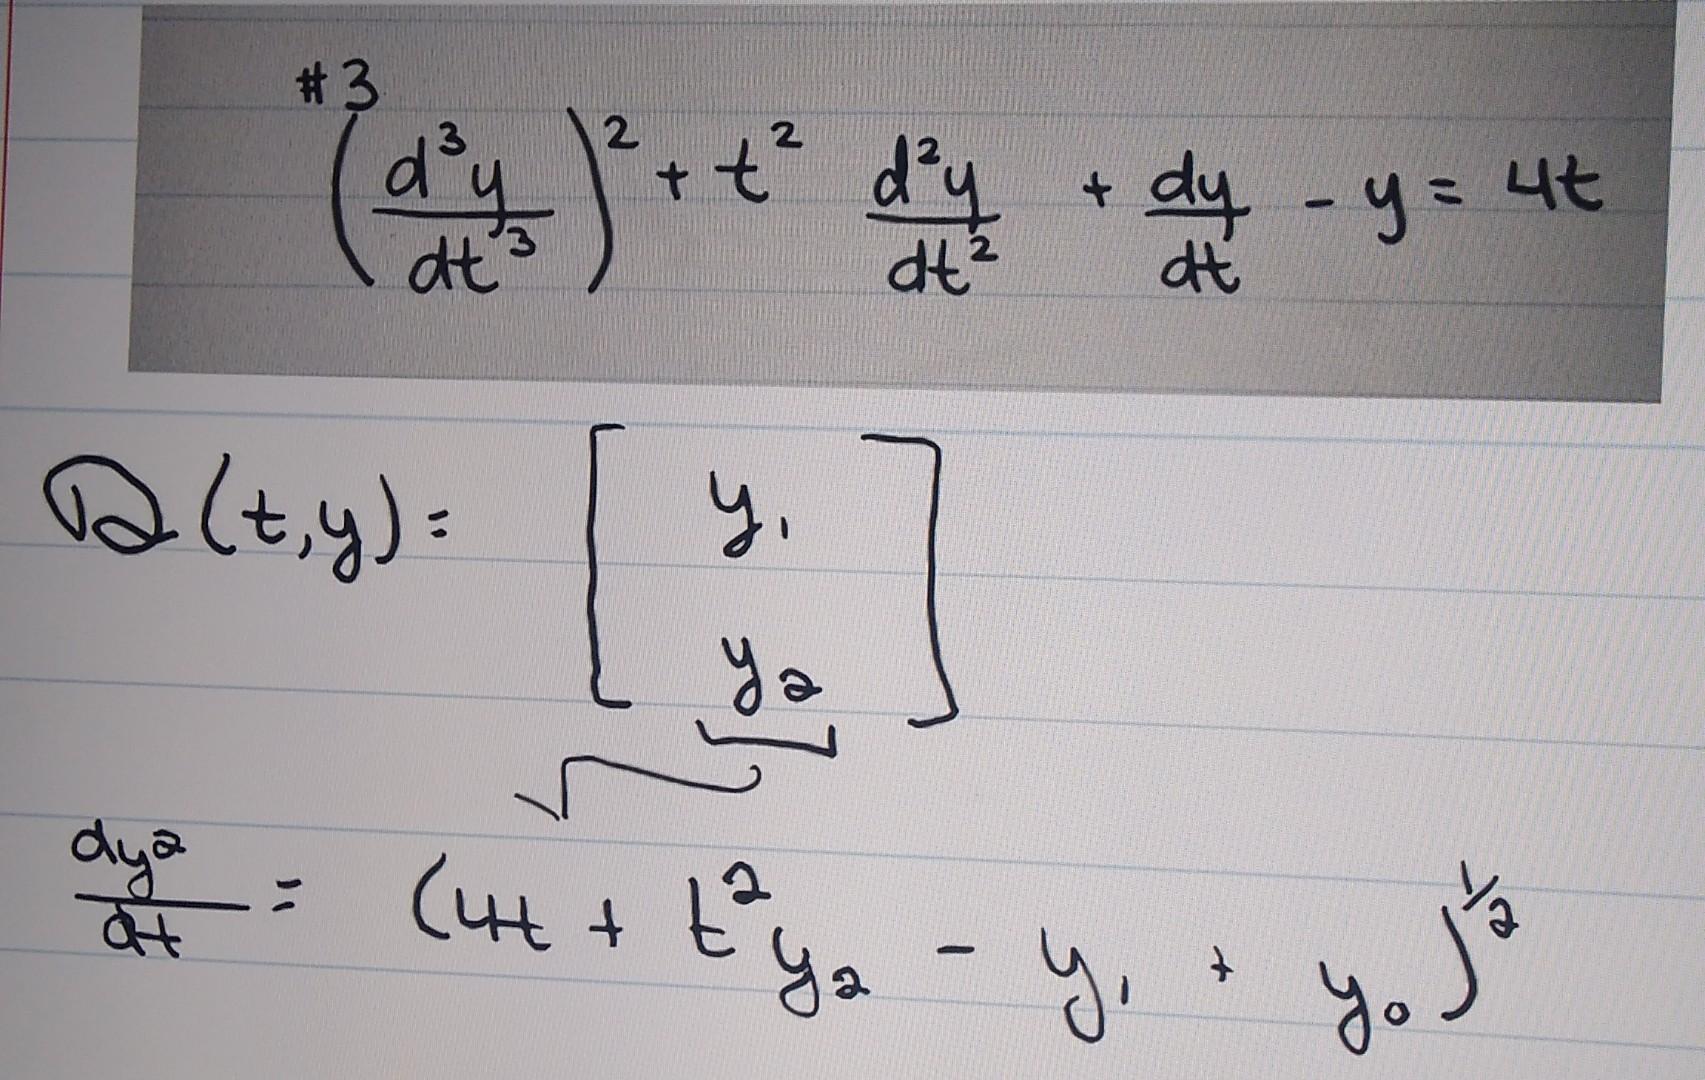 #3
(d³y/dt³)² + t² d²y/dt² + dy/dt - y = 4t
(t,y) = [y₁
y₂]
√
dy2/dt = (4t + t²y₂ - y₁ + y₀)^1/2